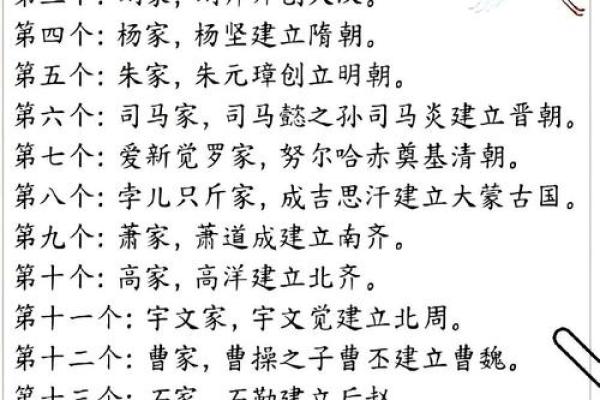 第四个：杨家，杨坚建立隋朝。
第五个：朱家，朱元璋创立明朝。
第六个：司马家，司马懿之孙司马炎建立晋朝。
第七个：爱新觉罗家，努尔哈赤奠基清朝。
第八个：孛儿只斤家，成吉思汗建立大蒙古国。
第九个：萧家，萧道成建立南齐。
第十个：高家，高洋建立北齐。
第十一个：宇文家，宇文觉建立北周。
第十二个：曹家，曹操之子曹丕建立曹魏。
第十三个：石家，石勒建立后赵。